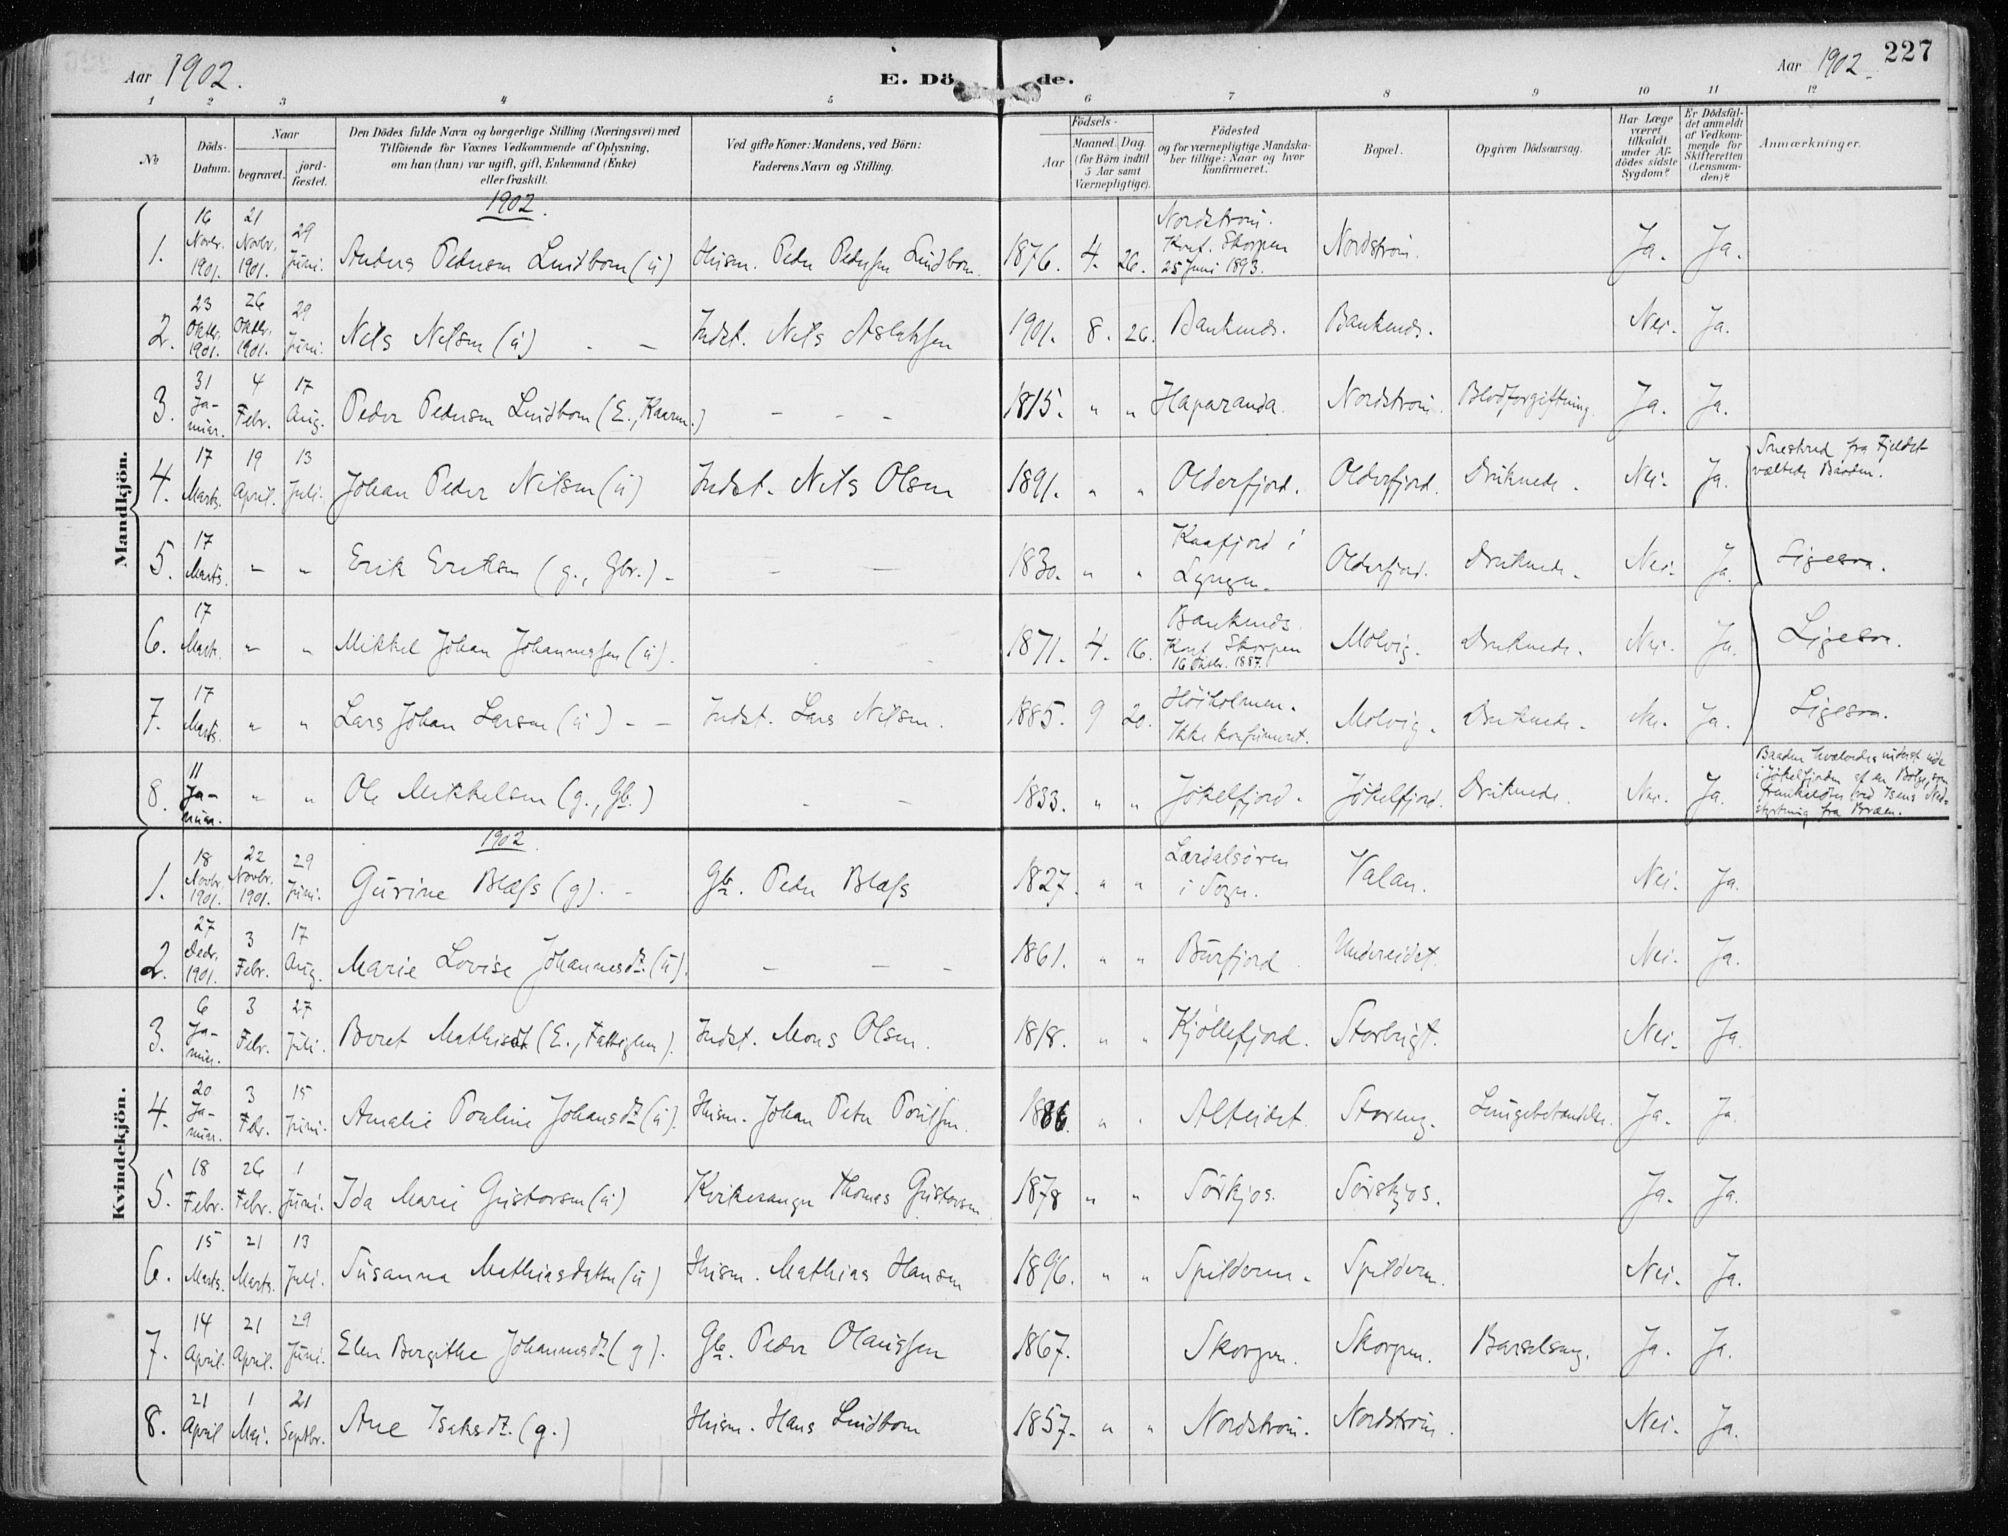 Aar 1902.
E. Dö de.
Aar 1902. 227
1 2 3 4 5 6 7 8 9 10 11 12
No
Döds-Datum.
Naar
begravet.
jord-fæstet.
Den Dödes fulde Navn og borgerlige Stilling (Næringsvei) med
Tilföiende for Voxnes Vedkommende af Oplysning,
om han (hun) var ugift, gift, Enkemand (Enke)
eller fraskilt.
Ved gifte Koner: Mandens, ved Börn:
Faderens Navn og Stilling.
Födsels-
Aar
Maaned. Dag.
(for Börn indtil
5 Aar samt
Værnepligtige).
Födested
og for værnepligtige Mandska-
ber tillige: Naar og hvor
konfirmeret.
Bopæl.
Opgiven Dödsaarsag.
Har Læge
været
tilkaldt
under Af-
dödes sidste
Sygdom?
Er Dödsfal-
det anmeldt
af Vedkom-
mende for
Skifteretten
(Lensman-
den)?
Anmærkninger.
Mandkjön.
1902.
1. 16 Novbr. 1901. 21 Novbr. 1901. 29 Juni. Anders Pedersen Lindbom (ú) Husm. Peder Pedersen Lindbom. 1876. 4. 26. Nordstrøm. Konf. Skorpen 25 Juni 1893. Nordstrøm. Ja. Ja.
2. 23 Oktbr. 1901. 26 Oktbr. 1901. 29 Juni. Nils Nilsen (ú) - Indst. Nils Aslaksen 1901. 8. 26. Bankends. Bankends. Nei. Ja.
3. 31 Ja-nuar. 4 Febr. 17 Aug. Peder Pedersen Lindbom (E., Kaarm.) - - - 1815. " " Haparanda. Nordstrøm. Blodforgiftning. Ja. Ja.
4. 17 Marts. 19 April. 13 Juli. Johan Peder Nilsen (ú) Indst. Nils Olsen 1891. " " Olderfjord. Olderfjord. Druknede. Nei. Ja. Sneskred fra Fjeldet væltede Baaden.
5. 17 Marts. " " Erik Eriksen (g., Gbr.) - - - 1830. " " Kaafjord i Lyngen. Olderfjord. Druknede. Nei. Ja. Ligesaa.
6. 17 Marts. " " Mikkel Johan Johannessen (ú). 1871. 4. 16. Bankends. Konf. Skorpen 16 Oktbr. 1887. Molvig. Druknede. Nei. Ja. Ligesaa.
7. 17 Marts. " " Lars Johan Larsen (ú) - - Indst. Lars Nilsen. 1885. 9 20. Høiholmen. Ikke konfirmeret. Molvig. Druknede. Nei. Ja. Ligesaa.
8. 11 Ja-nuar. " " Ole Mikkelsen (g., Gb.) - - 1833. " " Jökelfjord. Jökelfjord. Druknede. Nei. Ja. Baaden hvælvedes inderst inde i Jökelfjorden af en Bølge, som fremkaldtes ved Isens Ned-styrtning fra Bræen.
Kvindekjön.
1902.
1. 18 Novbr. 1901. 22 Novbr. 1901. 29 Juni. Gurine Blæss (g). - Gb. Peder Blæss 1827. " " Lærdalsøren i Sogn. Valan. Nei. Ja.
2. 27 Decbr. 1901. 3 Febr. 17 Aug. Marie Lovise Johannesdt. (ú). - - - 1861. " " Burfjord. Undereidet. Nei. Ja.
3. 6 Ja-nuar. 3 Febr. 27 Juli. Beret Mathisdt. (E., Fattiglem). Indst. Mons Olsen. 1818. " " Kjöllefjord. Storbugt. Nei. Ja.
4. 20 Ja-nuar. 3 Febr. 15 Juni. Amalie Pauline Johansdt. (ú). Husm. Johan Peter Poulsen. 1886. " " Alteidet. Storeng. Lungebetændelse. Ja. Ja.
5. 18 Febr. 26 Febr. 1 Juni. Ida Marie Gustavsen (ú) Kvikesanger Thomas Gustavsen 1878 " " Sørkjos. Sørskjos. Ja. Ja.
6. 15 Marts. 21 Marts. 13 Juli. Susanna Mathiasdatter (ú) Husm. Mathias Hansen 1896. " " Spilderen. Spilderen. Nei. Ja.
7. 14 April. 21 April. 29 Juni. Elen Bergithe Johannesdt. (g). Gb. Peder Olaussen 1867. Skorpen. Skorpen. Barselseng. Ja. Ja.
8. 21 April 1 Mai. 21 Septbr. Ane Isaksdt. (g.) Husm. Hans Lindbom 1857. " " Nordstrøm. Nordstrøm. Nei. Ja.